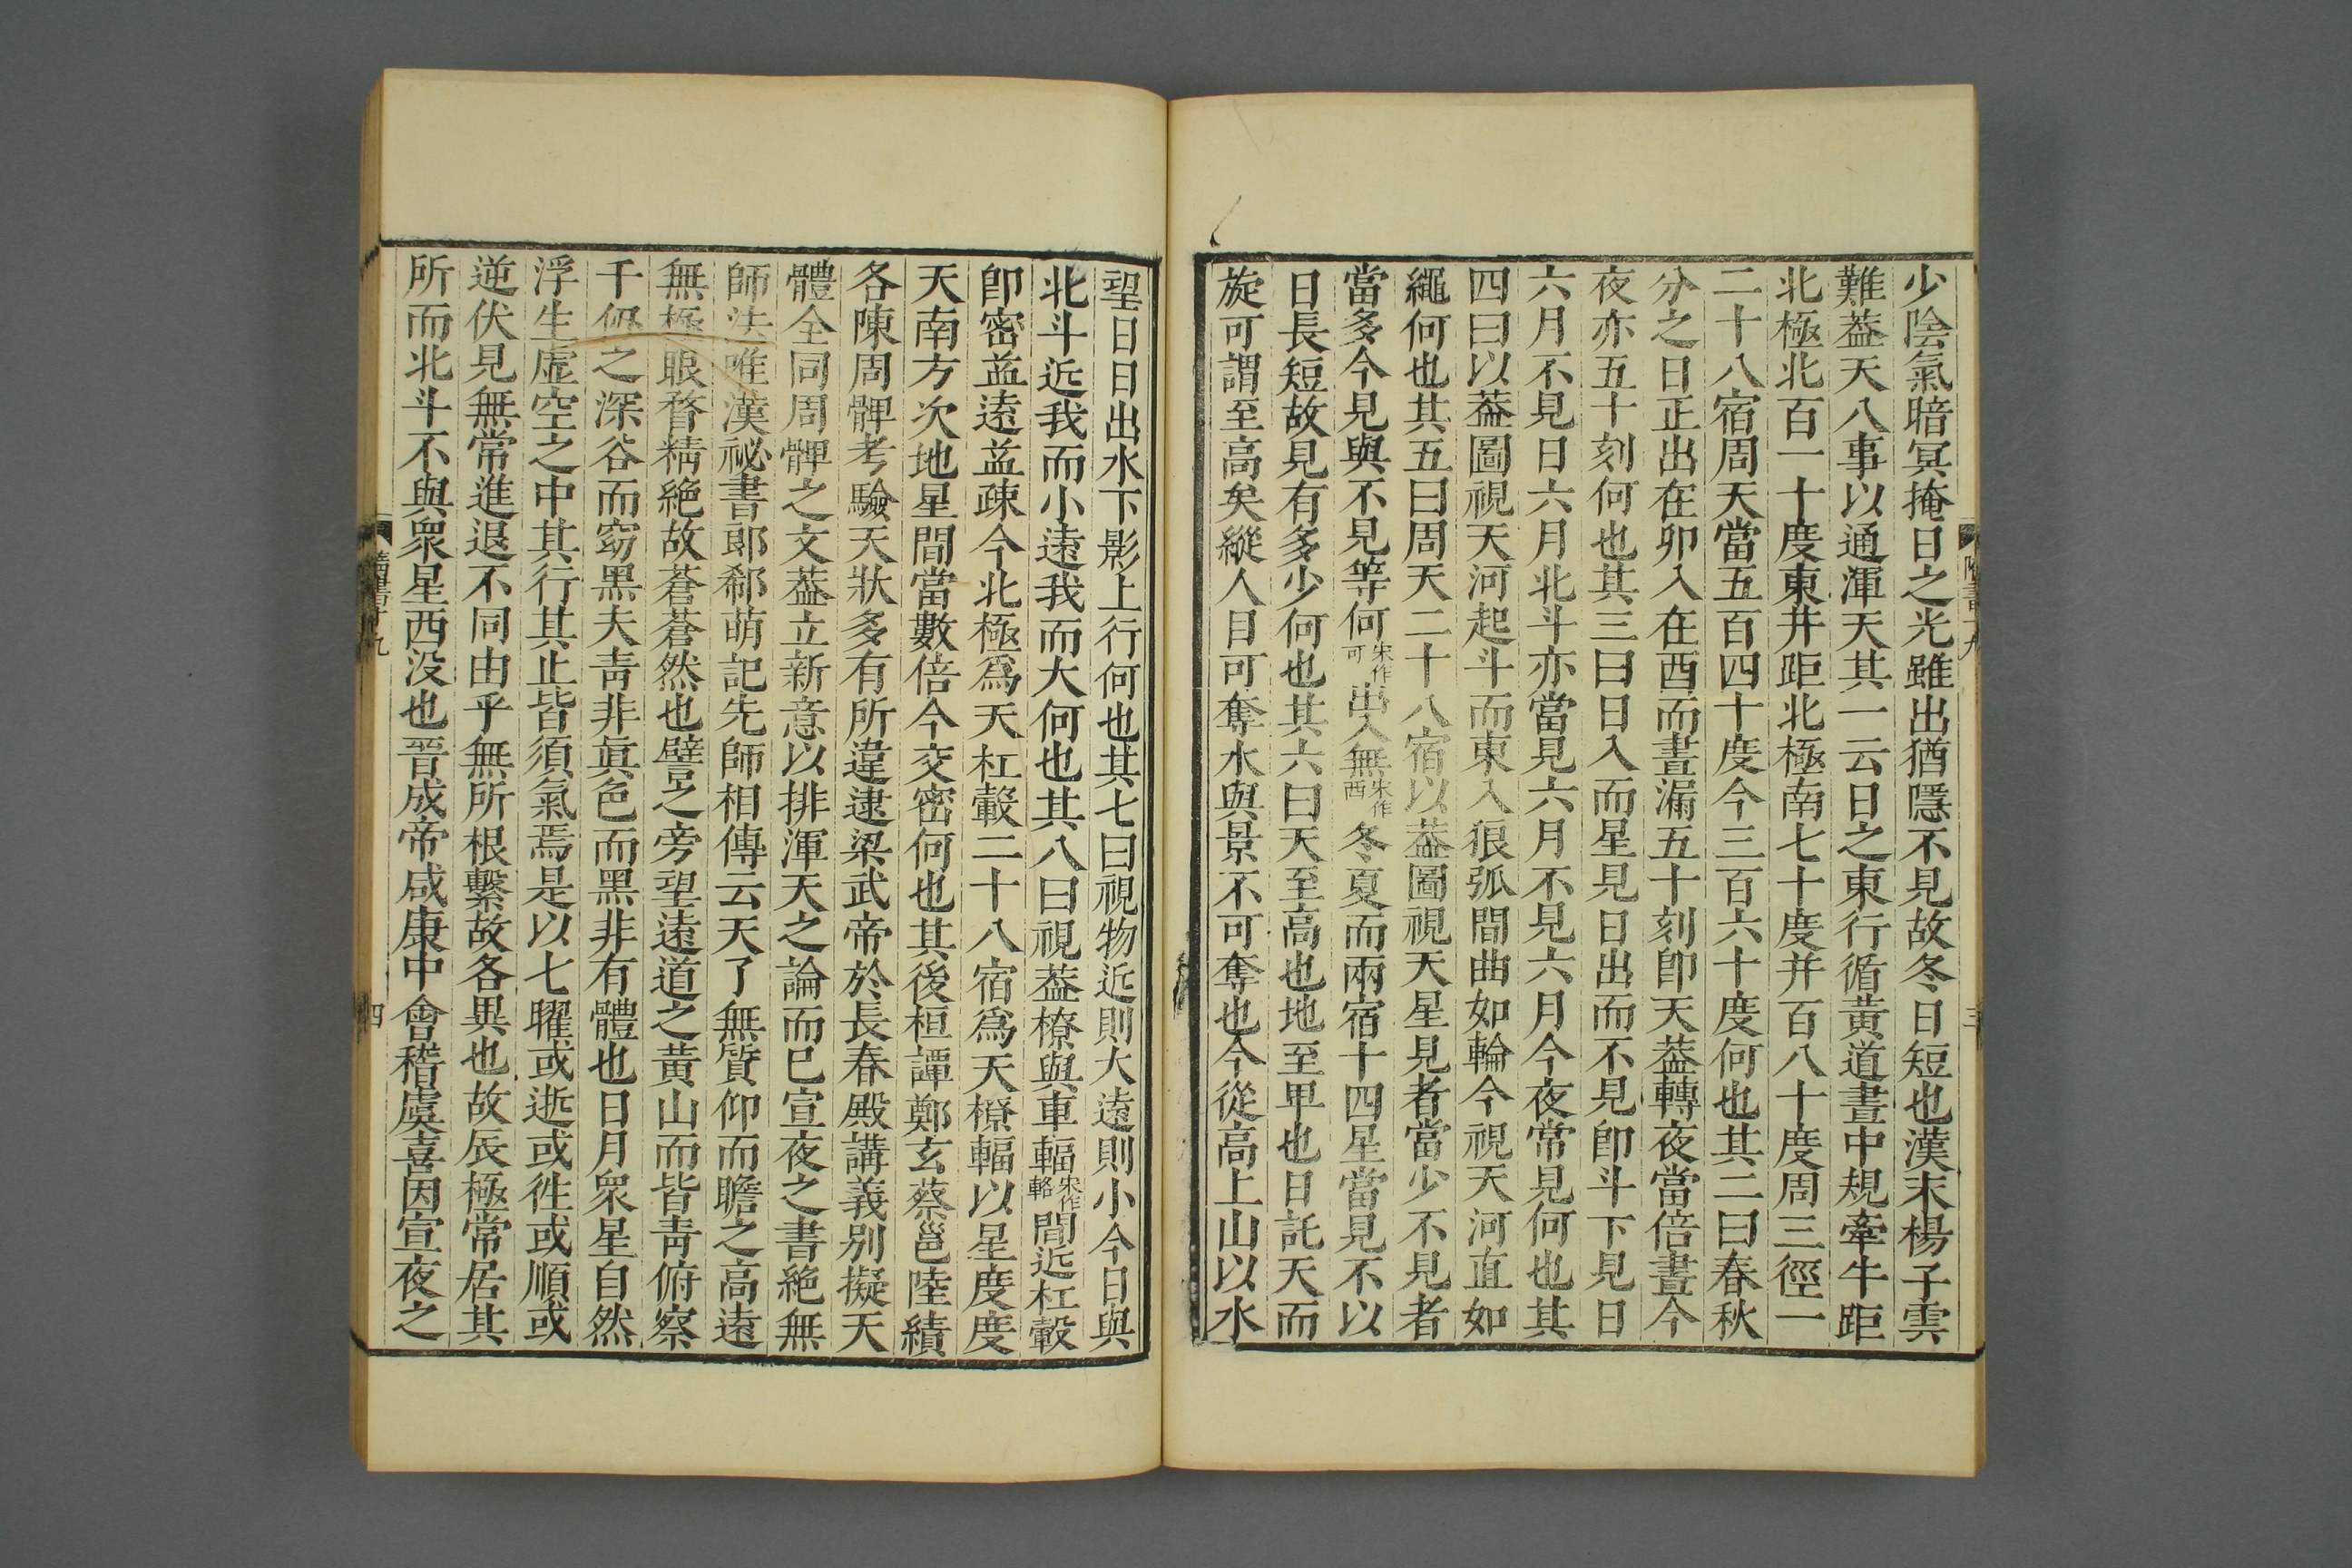 少陰氣暗冥掩日之光雖出猶隱不見故冬日短也漢末楊子雲
難葢天八事以通渾天其一云日之東行循黃道晝中規牽牛距
北極北百一十度東井距北極南七十度并百八十度周三徑一
二十八宿周天當五百四十度今三百六十度何也其二曰春秋
分之日正出在卯入在酉而晝漏五十刻卽天葢轉夜當倍晝今
夜亦五十刻何也其三曰日入而星見日出而不見卽斗下見日
六月不見日六月北斗亦當見六月不見六月今夜常見何也其
四曰以葢圖視天河起斗而東入狼弧間曲如輪今視天河直如
繩何也其五曰周天二十八宿以葢圖視天星見者當少不見者
當多今見與不見等何宋作可出入無宋作西冬夏而兩宿十四星當見不以
日長短故見有多少何也其六曰天至高也地至卑也日託天而
旋可謂至高矣縱人目可奪水與景不可奪也今從高上山以水
望日日出水下影上行何也其七曰視物近則大遠則小今日與
北斗近我而小遠我而大何也其八曰視葢橑與車輻宋作輅間近杠轂
卽密益遠益疎今北極爲天杠轂二十八宿爲天橑輻以星度度
天南方次地星間當數倍今交密何也其後桓譚鄭玄蔡邕陸績
各陳周髀考驗天狀多有所違逮梁武帝於長春殿講義别擬天
體全同周髀之文葢立新意以排渾天之論而已宣夜之書絶無
師法唯漢祕書郞郗萌記先師相傳云天了無質仰而瞻之高遠
無極眼瞀精絶故蒼蒼然也譬之旁望遠道之黃山而皆靑俯察
千仞之深谷而窈黑夫靑非眞色而黑非有體也日月衆星自然
浮生虛空之中其行其止皆須氣焉是以七曜或逝或徃或順或
逆伏見無常進退不同由乎無所根繫故各異也故辰極常居其
所而北斗不與衆星西没也晉成帝咸康中會稽虞喜因宣夜之
隋書十九
三
四